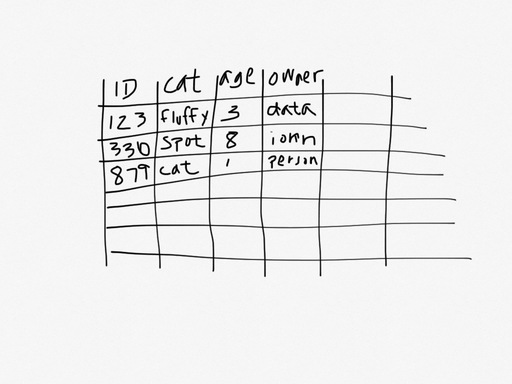 ID cat age owner
123 fluffy 3 data
330 spot 8
879 cat 1 person